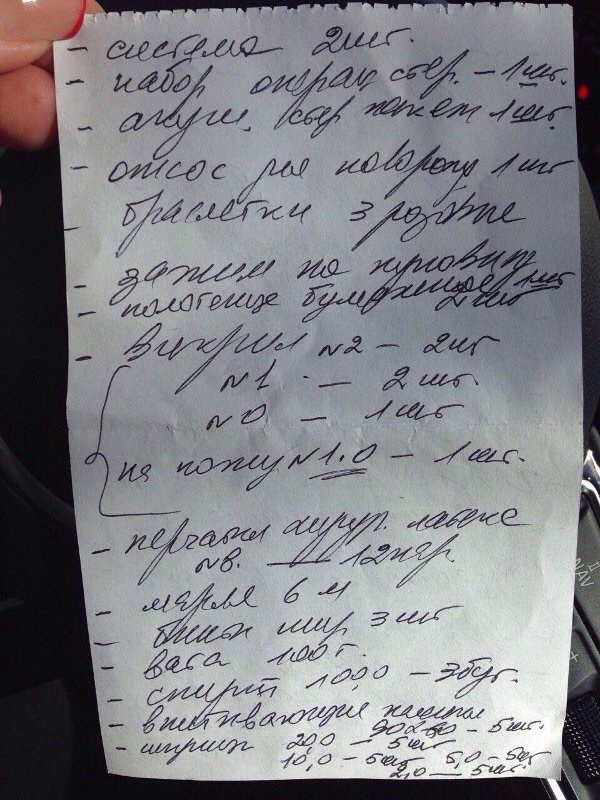 - система 2 шт.
- набор операц стер. - 1 шт.
- акуш. стер пакет 1 шт.
- отсос для новорожд 1 шт
- браслетки з розовые
- зажим на пуповину 1 шт
- полотенце бумажное 2 шт
- Викрил N2 - 2 шт
N1 - 2 шт.
N0 - 1 шт
на кожу N 1.0 - 1 шт.
- перчатки хирург. латекс
N8. - 12 пар.
- марля 6 м
- бинт шир 3 шт
- вата 100 г.
- спирт 100,0 - 3 бут.
- впитывающие пеленки
90х60 - 5 шт.
- шприцы 20,0 - 5 шт
10,0 - 5 шт 5,0 - 5 шт
2,0 - 5 шт